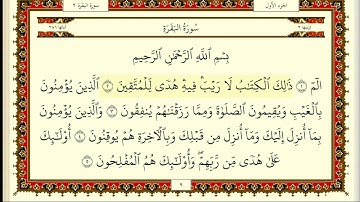 الجزء الأول
سورة البقرة ٢
سُورَةُ البَقَرَةِ
بِسْمِ ٱللَّهِ ٱلرَّحْمَٰنِ ٱلرَّحِيمِ
الٓمٓ ۝١ ذَٰلِكَ ٱلْكِتَٰبُ لَا رَيْبَ ۛ فِيهِ ۛ هُدًى لِّلْمُتَّقِينَ ۝٢ ٱلَّذِينَ يُؤْمِنُونَ
بِٱلْغَيْبِ وَيُقِيمُونَ ٱلصَّلَوٰةَ وَمِمَّا رَزَقْنَٰهُمْ يُنفِقُونَ ۝٣ وَٱلَّذِينَ يُؤْمِنُونَ
بِمَآ أُنزِلَ إِلَيْكَ وَمَآ أُنزِلَ مِن قَبْلِكَ وَبِٱلْءَاخِرَةِ هُمْ يُوقِنُونَ ۝٤ أُو۟لَٰٓئِكَ
عَلَىٰ هُدًى مِّن رَّبِّهِمْ ۖ وَأُو۟لَٰٓئِكَ هُمُ ٱلْمُفْلِحُونَ ۝٥